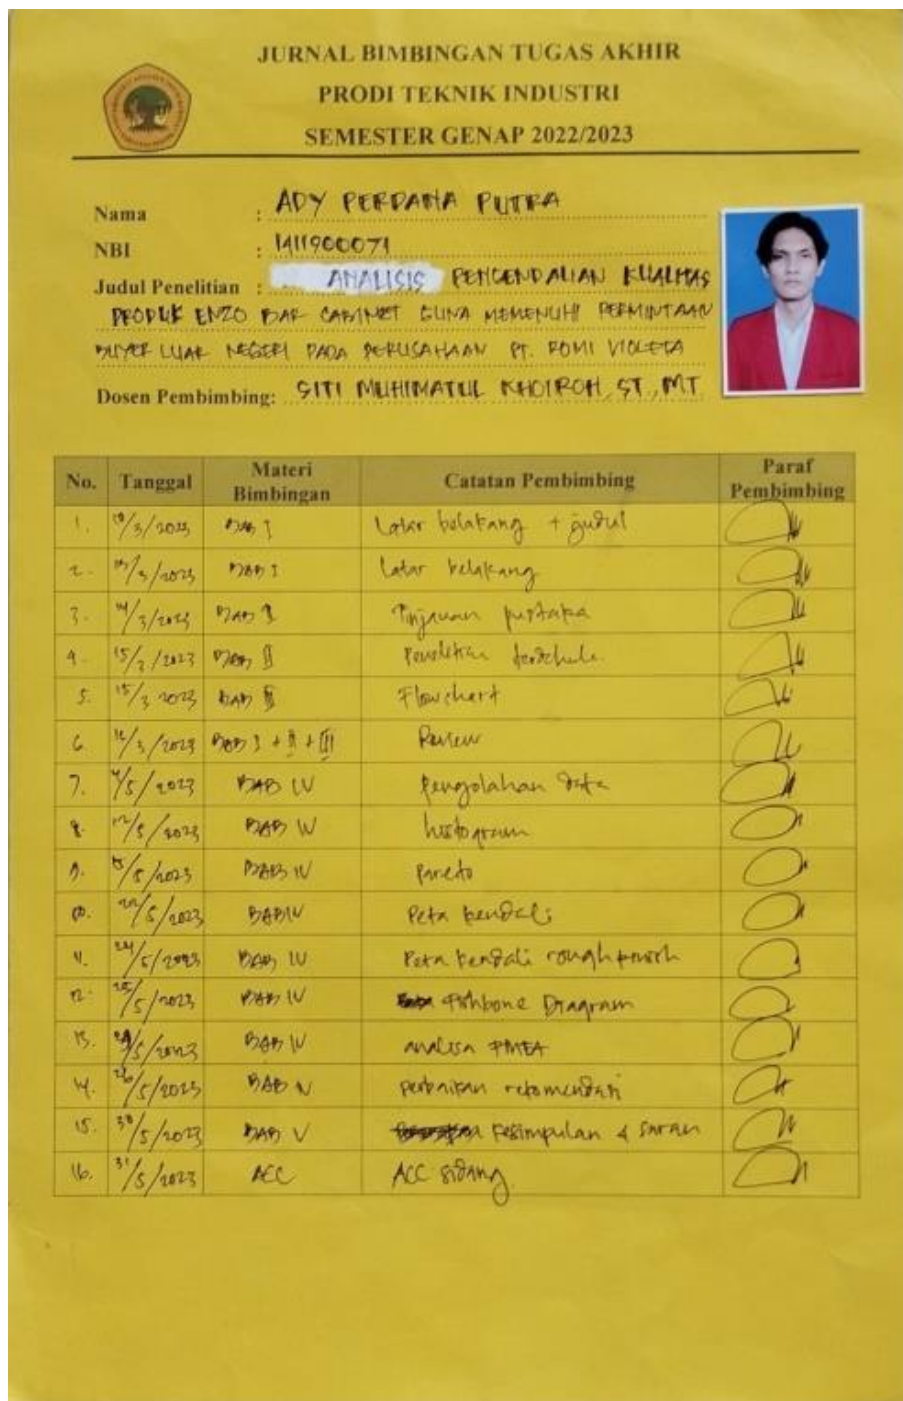 JURNAL BIMBINGAN TUGAS AKHIR
PRODI TEKNIK INDUSTRI
SEMESTER GENAP 2022/2023
Nama : ADY PERDANA PUTRA
NBI : 1411900071
Judul Penelitian : ANALISIS PENGENDALIAN KUALITAS
PRODUK ENZO BAR CABINET GUNA MEMENUHI PERMINTAAN
BUYER LUAR NEGERI PADA PERUSAHAAN PT. ROMI VIOLETA
Dosen Pembimbing: SITI MUHIMATUL KHOIROH, ST., MT
No. Tanggal Materi Bimbingan Catatan Pembimbing Paraf Pembimbing
1. /3/2023 BAB I Latar belakang + judul
2. /3/2023 BAB I Latar belakang
3. 14/3/2023 BAB Tinjauan pustaka
4. 15/3/2023 BAB II Penelitian
5. 15/3 2023 BAB Flowchart
6. /3/2023 BAB I + II + III Review
7. /5/2023 BAB IV Pengolahan data
8. 12/5/2023 BAB IV histogram
9. /5/2023 BAB IV Pareto
10. 22/5/2023 BAB IV Peta kendali
11. 24/5/2023 BAB IV Peta kendali rough
12. 25/5/2023 BAB IV Fishbone Diagram
13. /5/2023 BAB IV analisa FMEA
14. 26/5/2023 BAB perbaikan rekomendasi
15. 30/5/2023 BAB V kesimpulan & saran
16. 31/5/2023 ACC ACC sidang